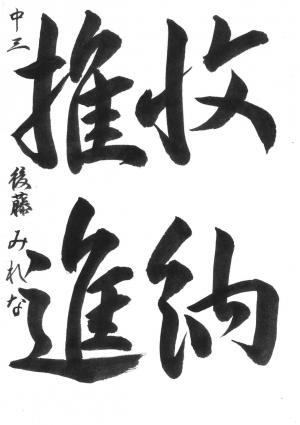 収納
推進
中三 後藤みれな